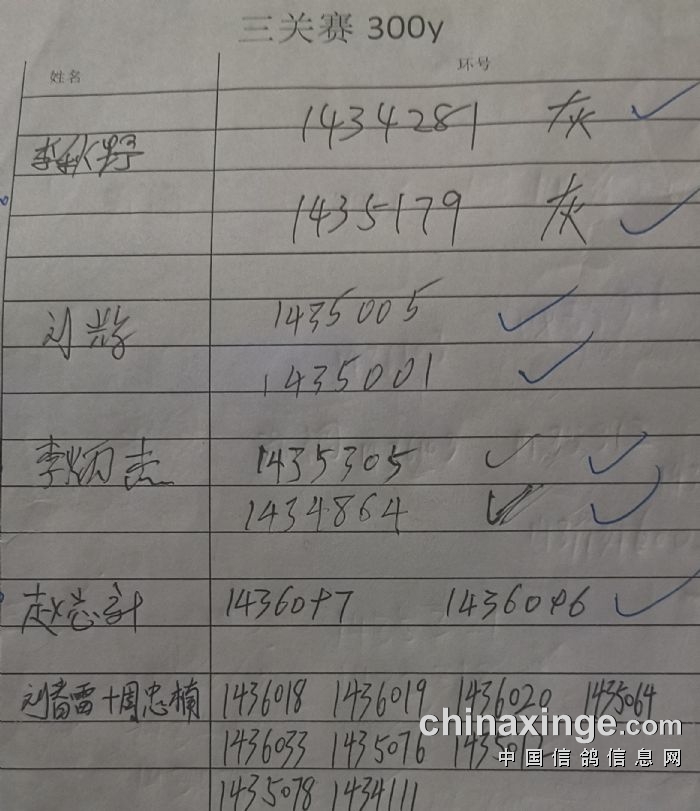 三关赛 300y
姓名 环号
1434281 灰
李秋野
1435179 灰
1435005
刘
1435001
李炳杰 1435305
1434864
赵总计 1436097 1436096
刘春雷+周忠楠 1436018 1436019 1436020 1435064
1436033 1435076
1435078 1434111
chinaxinge.com
中国信鸽信息网